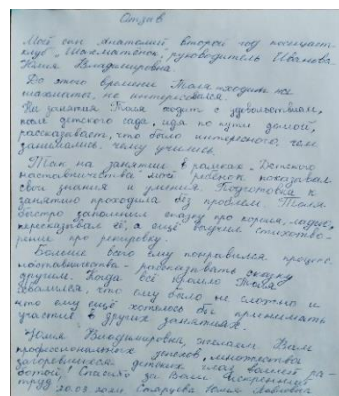 Отзыв
Мой сын Анатолий второй год посещает
клуб "Шахматёнок", руководитель Иванова
Юлия Владимировна.
До этого времени Толя к
шахматам не интересовался.
На занятия Толя ходит с удовольствием,
после детского сада, идя по пути домой,
рассказывает, что было интересного, чем
занимались, чему учились.
Так на занятие в рамках "Детского
наставничества" мой ребенок показывал
свои знания и умения. Подготовка к
занятию проходила без проблем. Толя
быстро запомнил сказку про короля, ладью,
пересказывал её, а ещё выучил стихотво-
рение про
Больше всего ему понравился процесс
наставничества - рассказывать сказку
другим. Когда всё прошло Толя
сказал, что ему было не сложно и
что ему ещё хотелось бы принимать
участие в других занятиях.
Юлия Владимировна, желаем Вам
профессиональных успехов, множества
загоревшихся детских глаз вашей ра-
ботой! Спасибо за Ваш искренний
труд!
20.03.2024 Старцева Юлия